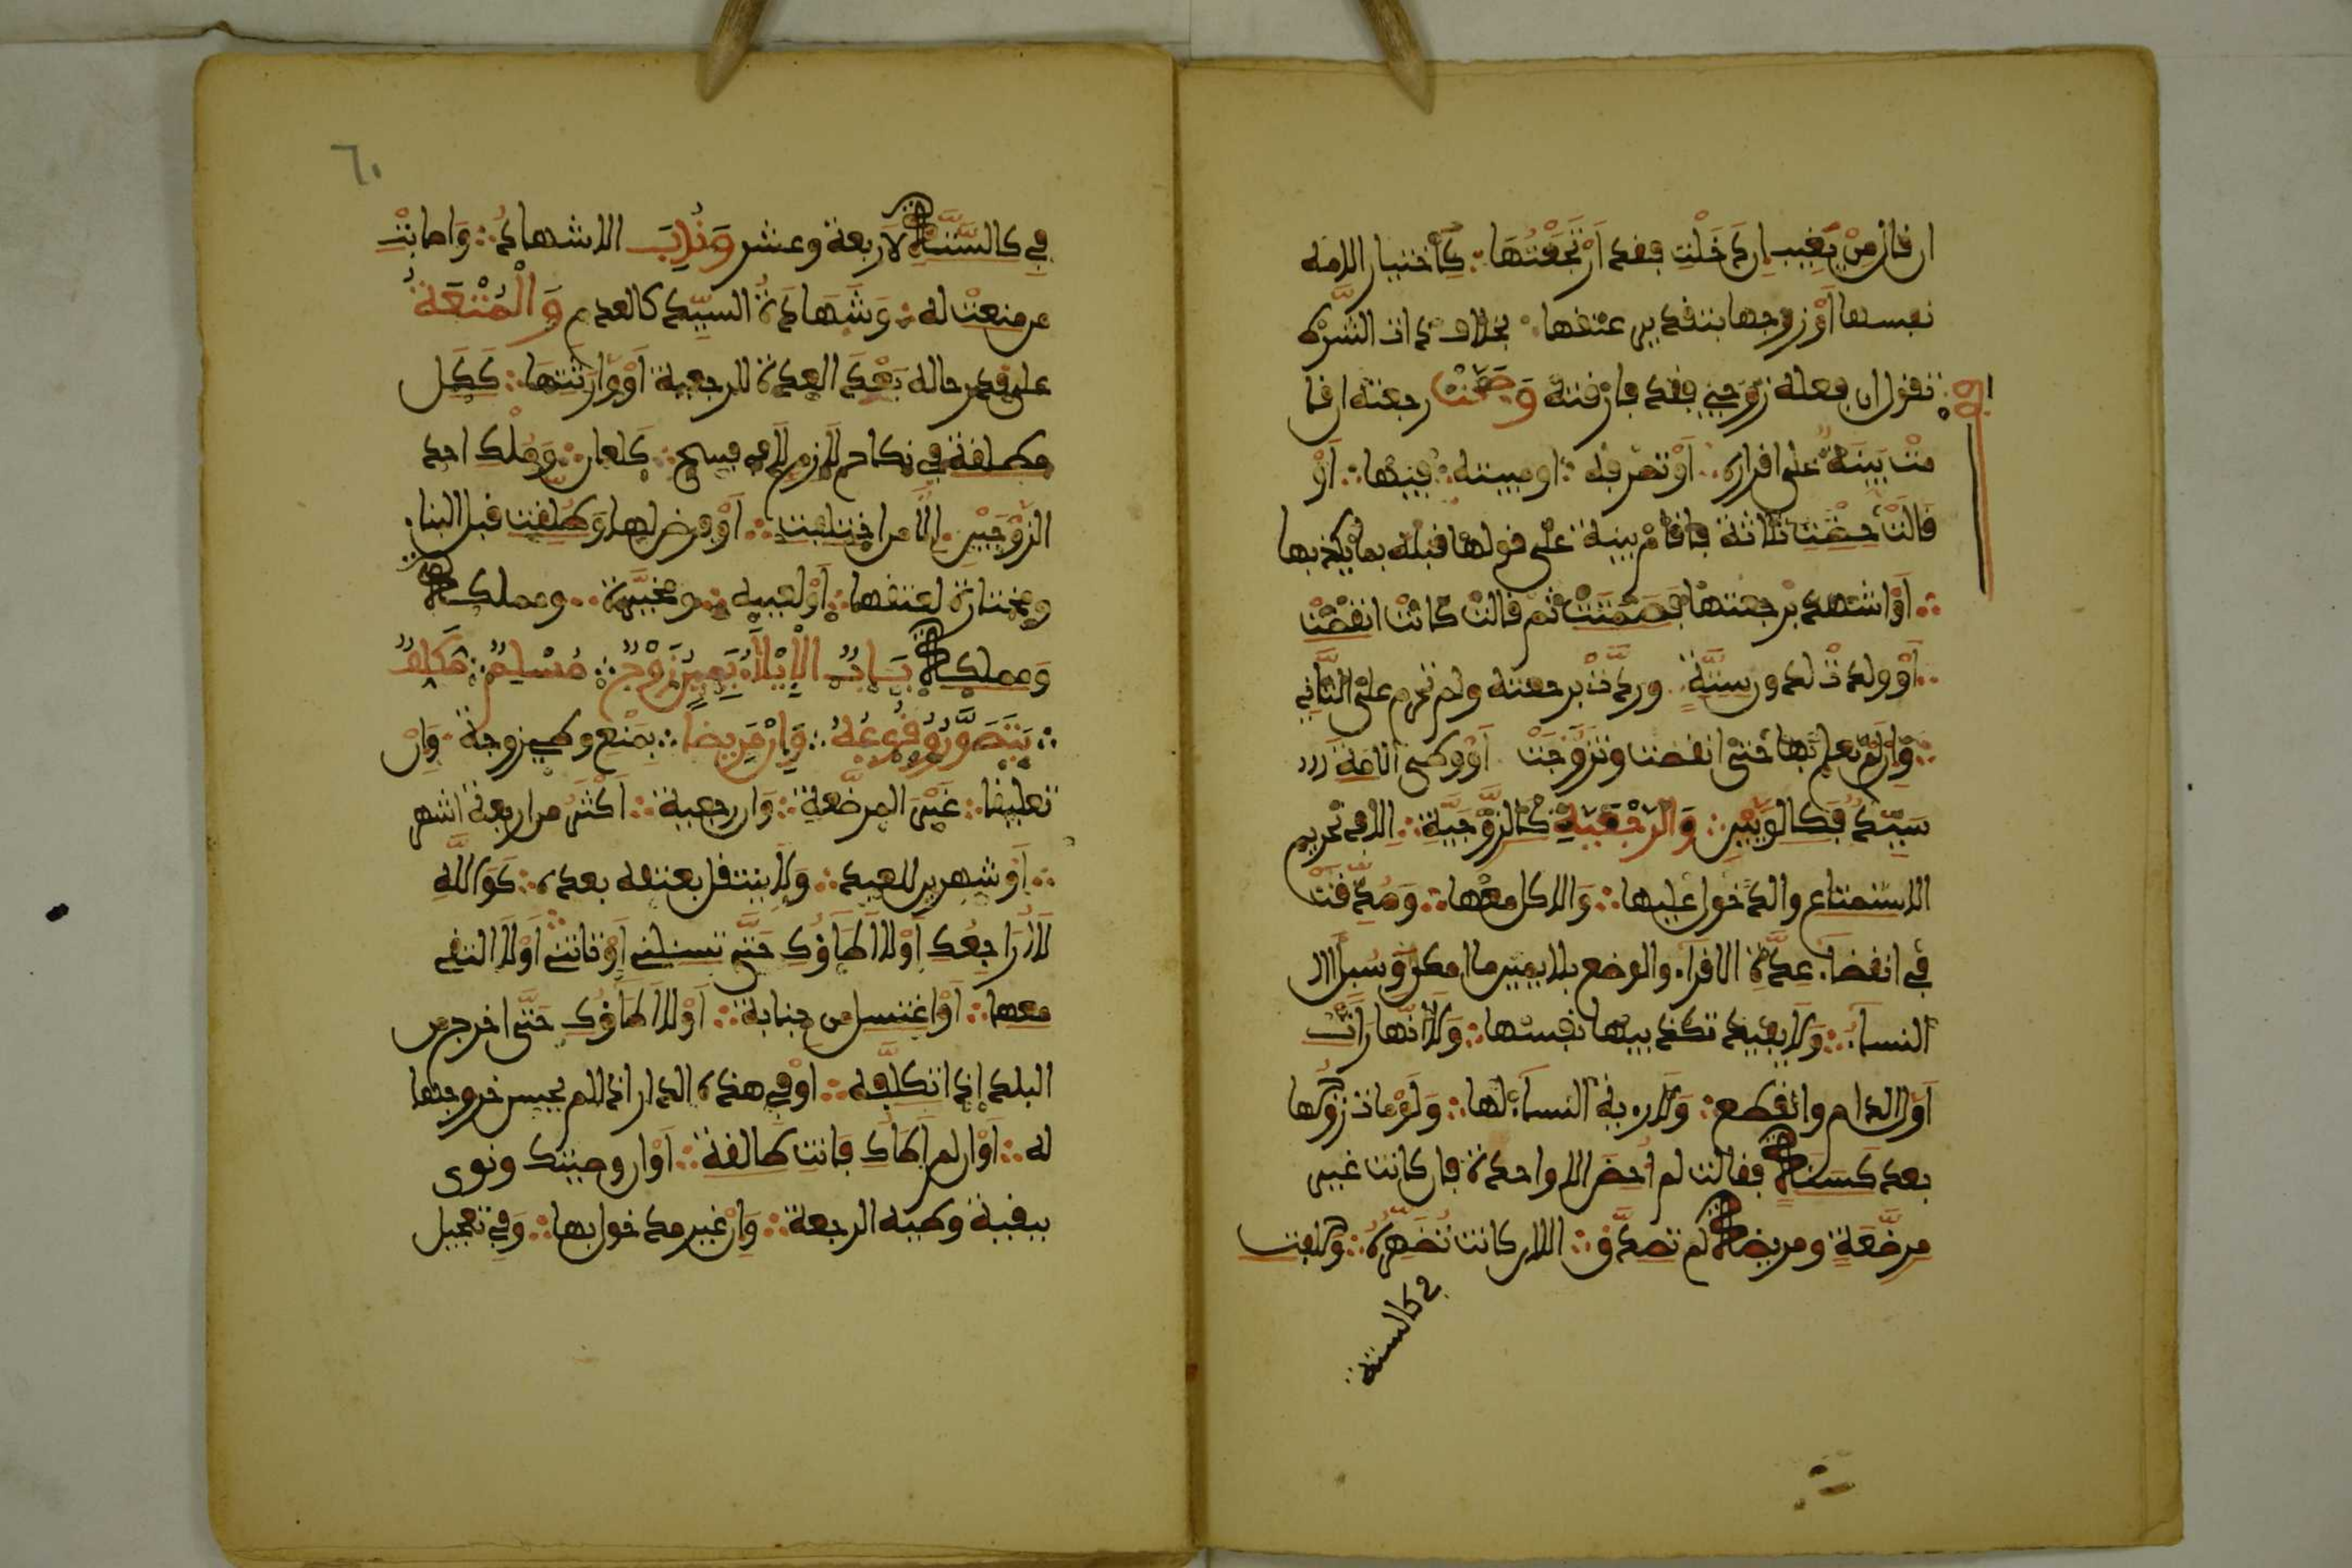 ان قال من يغيب ان دخلت فقد ارتجعتها كاختيار الامة
نفسها او زوجها بتقدير عتقها بخلاف ذات الشرط
تقول ان فعله زوجي فقد فارقته وصحت رجعته ان قا
مت بينة على اقراره او تصرفه او مبيته فيها او
قالت حضت ثالثة فاقام بينة على قولها قبله بما يكذبها
او اشهد برجعتها فصمتت ثم قالت كانت انقضت
او ولدت لدون ستة وردت برجعته ولم تحرم على الثاني
وان لم تعلم بها حتى انقضت وتزوجت او وطئ الامة
سيد فكالوليين والرجعية كالزوجية الا في تحريم
الاستمتاع والدخول عليها والاكل معها وصدقت
في انقضاء عدة الاقراء والوضع بلا يمين ما امكن وسئل
النساء ولا يفيد تكذيبها نفسها ولا انها رات
اول الدم وانقطع ولا روية النساء لها ولو مات زوجها
بعد كسنة فقالت لم احض الا واحدة فان كانت غير
مرضعة ومريضة لم تصدق الا ان كانت تظهره وحلفت
في كالستة
٦٠
في كالستة لا اربعة وعشر وندب الاشهاد واصابت
من منعت له وشهادة السيد كالعدم والمتعة
على قدر حاله بعد العدة للرجعية او ورثتها ككل
مطلقة في نكاح لازم لا في فسخ كلعان وملك احد
الزوجين الا من اختلعت او فرض لها وطلقت قبل البناء
ومختارة لعتقها او لعيبه ومخيرة ومملكة
ومملكة باب الايلاء يمين زوج مسلم مكلف
يتصور وقوعه وان مريضا بمنع وطي زوجة وان
تعليقا غير المرضعة وان رجعية اكثر من اربعة اشهر
او شهرين للعبد ولا ينتقل بعتقه بعده كوالله
لا اراجعك او لا اطاؤك حتى تسئلني او تاتني او لا التقي
معها او اغتسل من جنابة او لا اطاؤك حتى اخرج من
البلد اذا تكلفه او في هذه الدار اذا لم يحسن خروجها
له او ان لم اطاك فانت طالقة او ان وطيتك ونوى
ببقية وطيه الرجعة وان غير مدخول بها وفي تعجيل